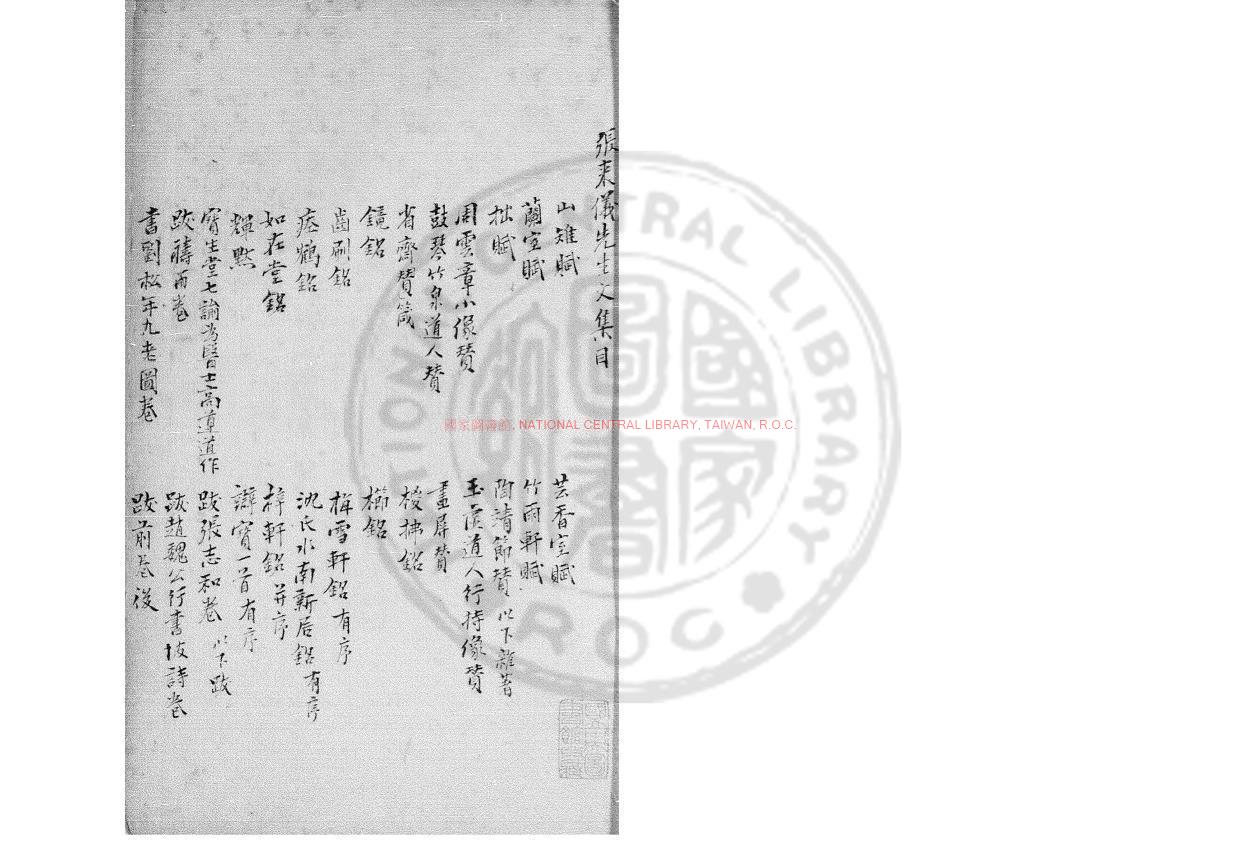 張来儀先生文集目
山雉賦
芸香室賦
蘭室賦
竹雨軒賦
拙賦
陶靖節贊 以下雜著
周雲章小像贊
玉蒼道人行持像贊
鼓琴竹泉道人贊
畫屏贊
省齋贊箴
椶拂銘
鏡銘
櫛銘
齒刷銘
梅雪軒銘 有序
瘞鶴銘
沈氏水南新居銘 有序
如在堂銘
梓軒銘 并序
辯點
辯寶一首 有序
寶生堂七諭為醫士高道作
跋張志和卷 以下跋
跋禱雨卷
跋趙魏公行書坡詩卷
書劉松年九老圖卷
跋前卷後
國家圖書館, NATIONAL CENTRAL LIBRARY, TAIWAN, R.O.C.
NATIONAL CENTRAL LIBRARY
ROC